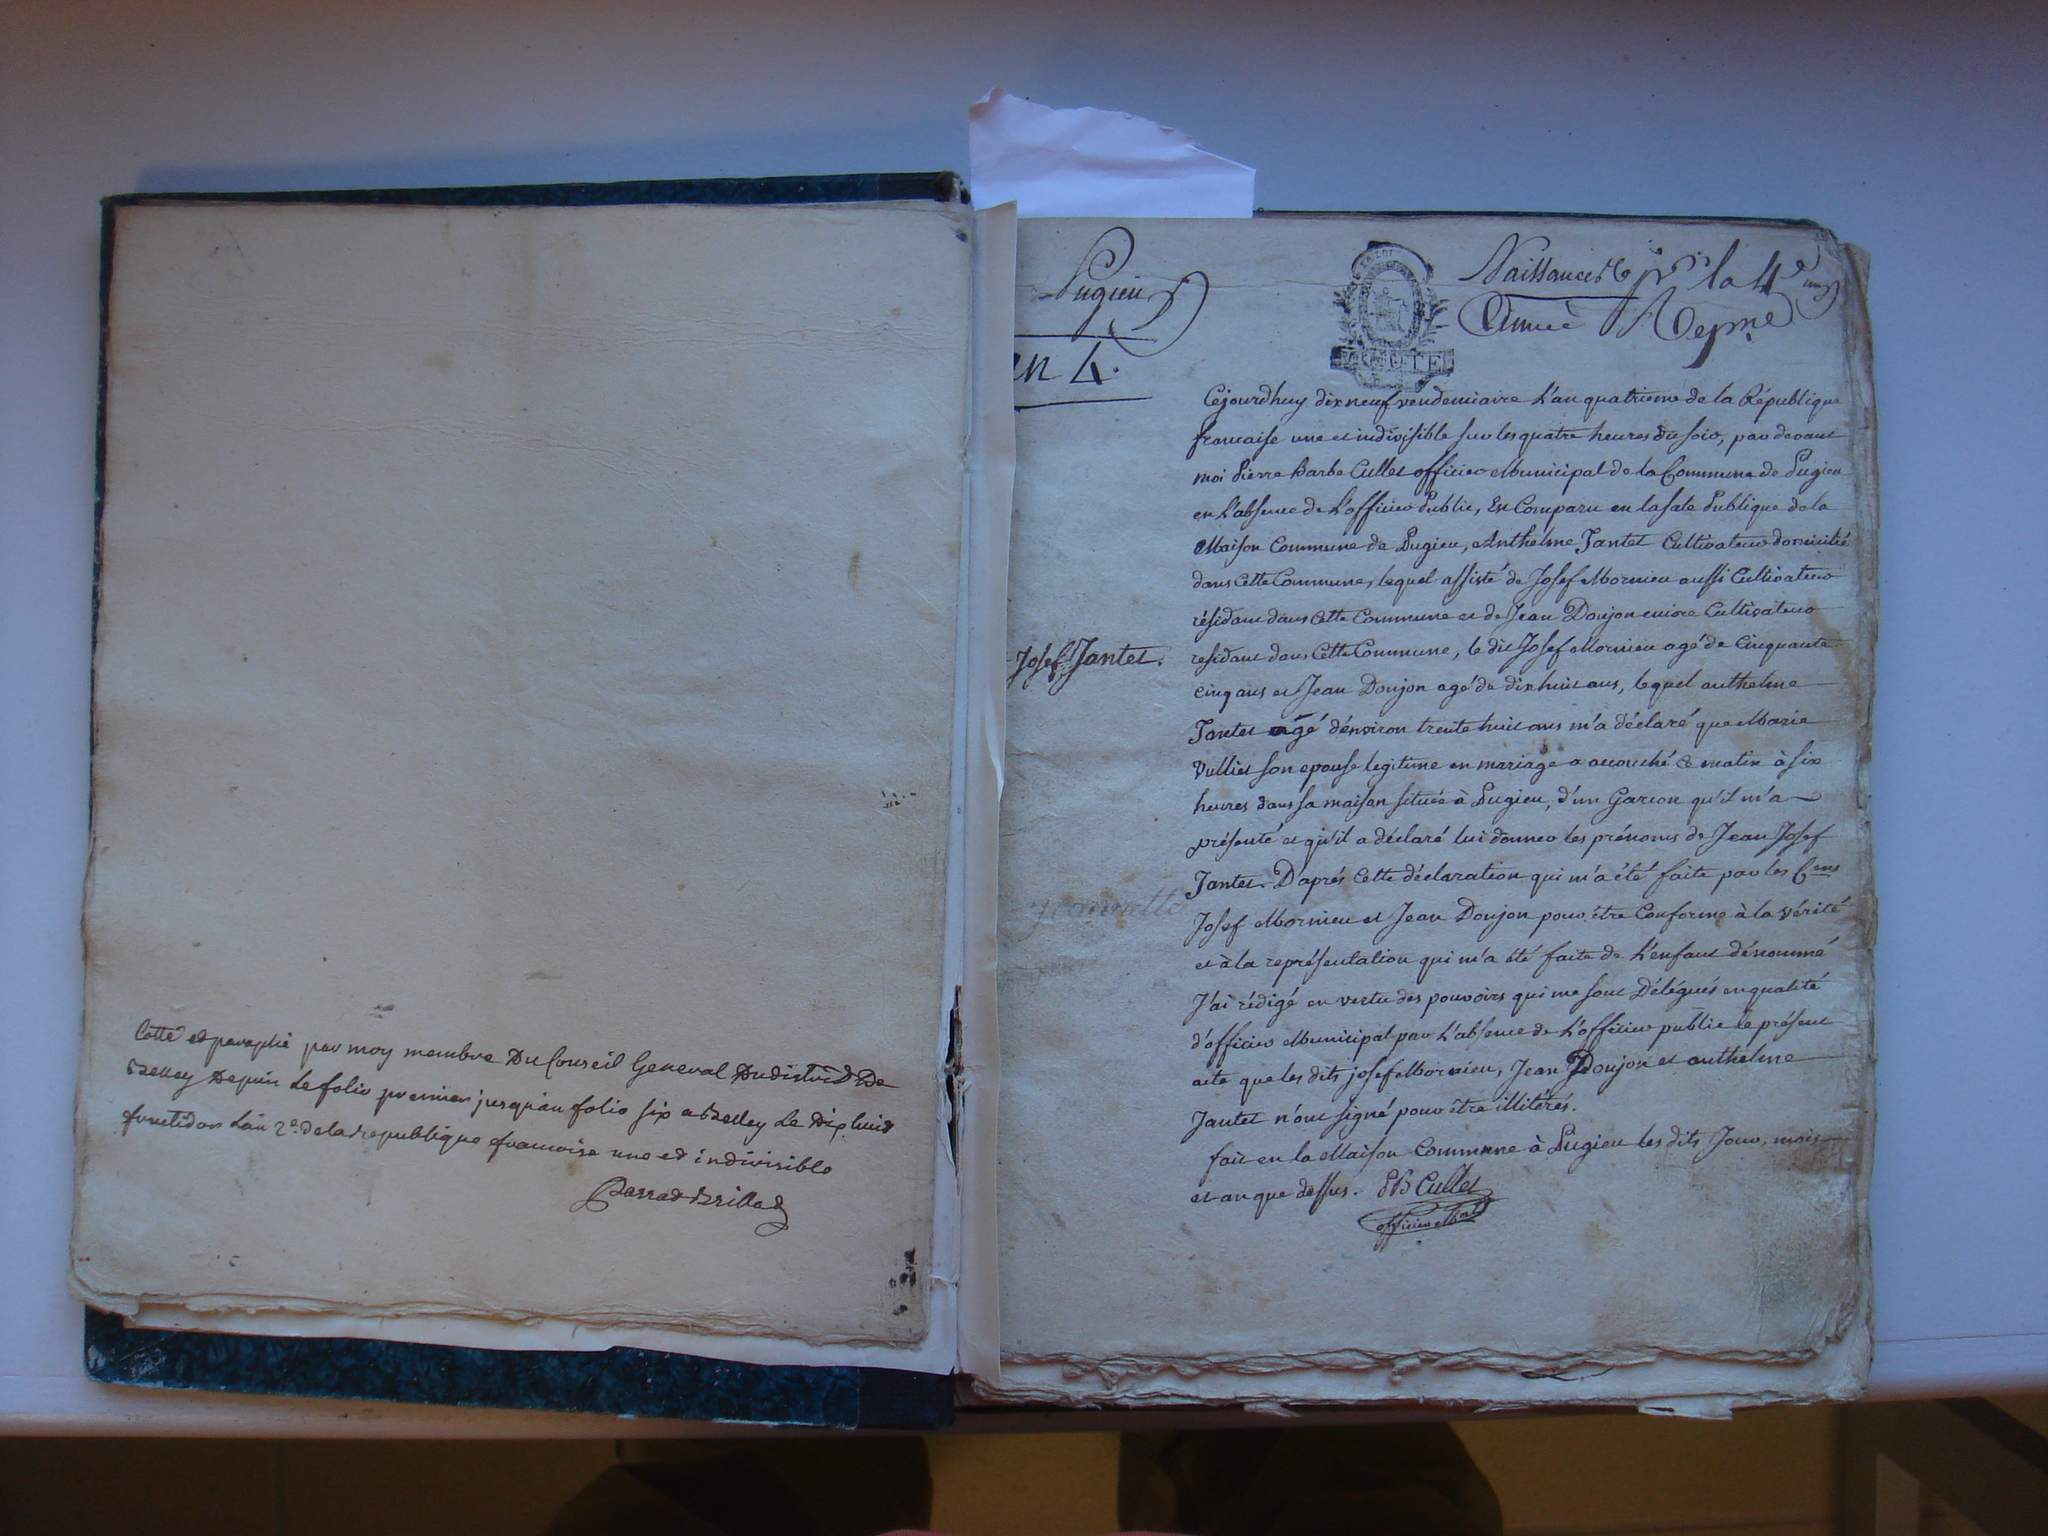 Cotté et paraphé par moy membre Du Conseil General Du district De
Belley Depuis Le folio premier jusqu'au folio six a Belley Le Dixhuit
fructidor L'an 2e. de la republique francoise une et indivisible
Pugieu
an 4.
LA LOI
MINUTE
Naissances la 4e
Année
Josef Jantet.
Cejourdhuy dix neuf vendemiaire L'an quatrieme de la République
francaise une et indivisible sur les quatre heures du soir, par devant
moi Pierre Barbe Cullet officier Municipal de la Commune de Pugieu
en L'absence de L'officier Public, Est Comparu en la sale Publique de la
Maison Commune de Pugieu, Anthelme Jantet Cultivateur domicilié
dans Cette Commune, lequel assisté de Josef Mornieu aussi Cultivateur
résidant dans Cette Commune et de Jean Doujon encore Cultivateur
residant dans Cette Commune, le dit Josef Mornieu agé de Cinquante
cinq ans et Jean Doujon agé de dix huit ans, lequel anthelme
Jantet agé d'environ trente huit ans m'a déclaré que Marie
Vulliet son epouse legitime en mariage a accouché ce matin à six
heures dans sa maison située à Pugieu, d'un Garcon qu'il m'a
présenté et qu'il a déclaré lui donner les prénoms de Jean Josef
Jantet. D'aprés Cette déclaration qui m'a été faite par les Cens
Josef Mornieu et Jean Doujon pour être Conforme à la vérité
et à la représentation qui m'a été faite de L'enfant dénommé
J'ai rédigé en vertu des pouvoirs qui me sont Délégués en qualité
d'officier Municipal par L'absence de L'officier public le présent
acte que les dits josef Mornieu, Jean Doujon et anthelme
Jantet n'ont signé pour être illitérés.
fait en la Maison Commune à Pugieu les dits Jour, mois
et an que dessus. PB Cullet
officier Mpal